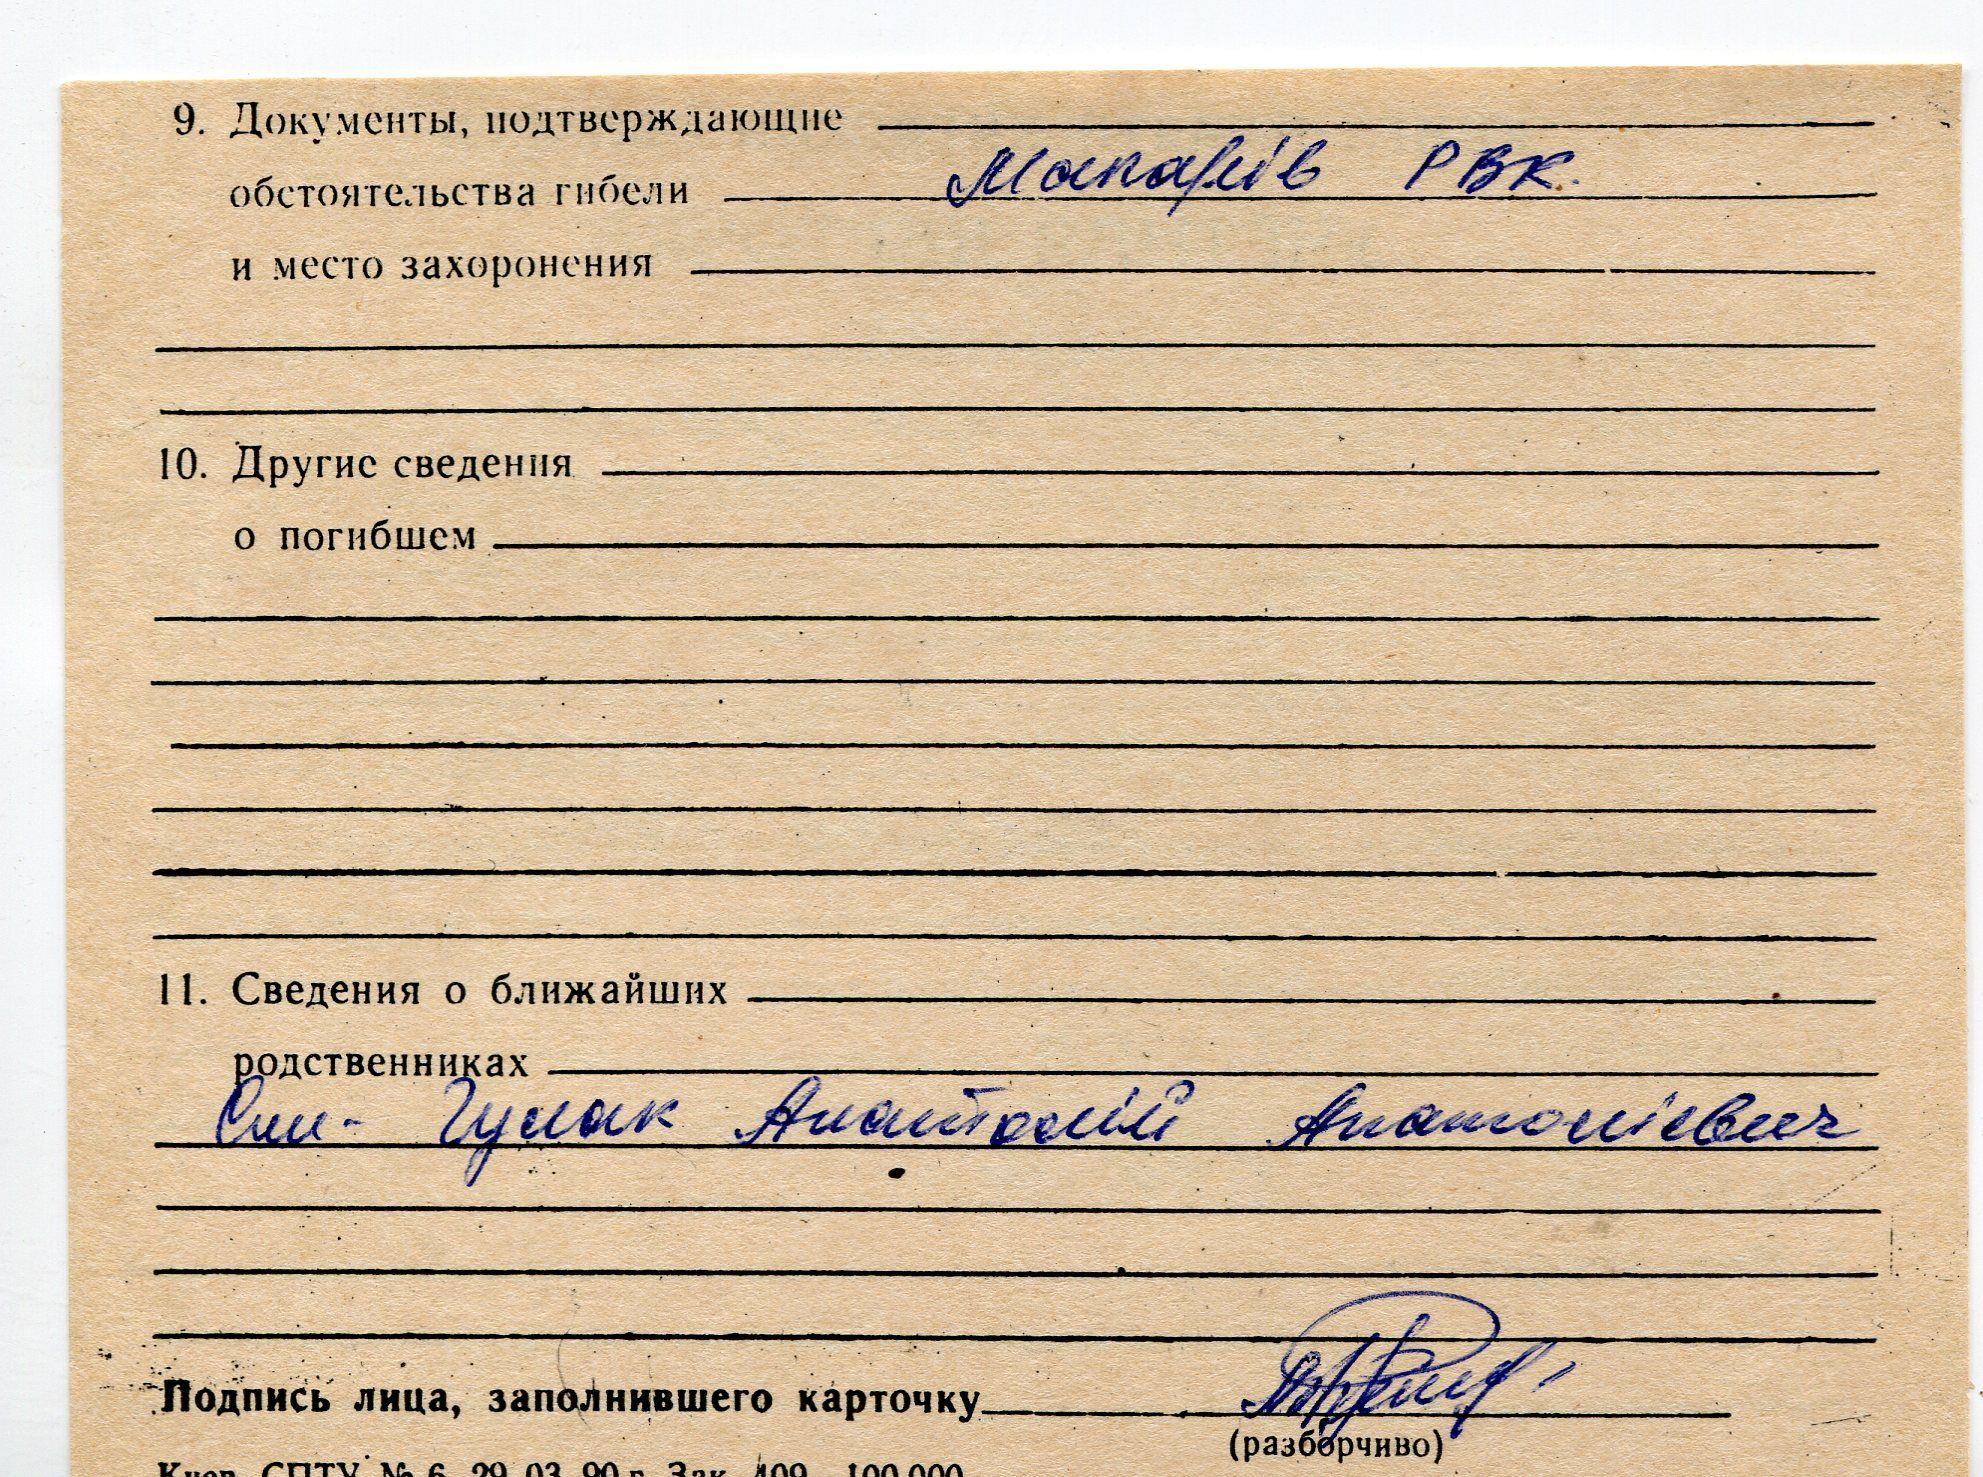 9. Документы, подтверждающие
обстоятельства гибели Макарів РВК.
и место захоронения
10. Другие сведения
о погибшем
11. Сведения о ближайших
родственниках
Син- Гулак Анатолій Анатолієвич
Подпись лица, заполнившего карточку
(разборчиво)
Киев. СПТУ № 6. 29. 03. 90 г. Зак. 409—100.000